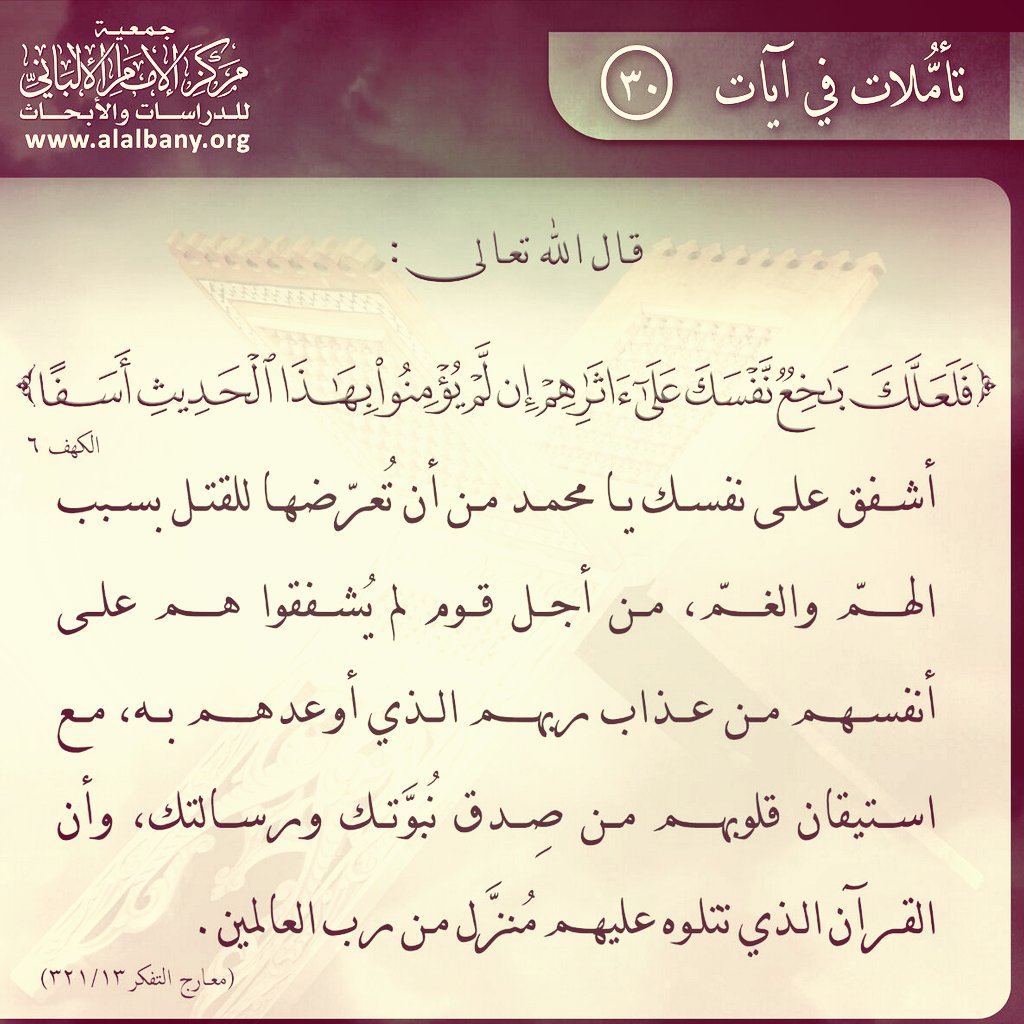 جمعية
مركز الإمام الألباني
للدراسات والأبحاث
www.alalbany.org
تأمُّلات في آيات ٣٠
قال الله تعالى :
﴿فَلَعَلَّكَ بَٰخِعٞ نَّفۡسَكَ عَلَىٰٓ ءَاثَٰرِهِمۡ إِن لَّمۡ يُؤۡمِنُواْ بِهَٰذَا ٱلۡحَدِيثِ أَسَفًا﴾
الكهف ٦
أشفق على نفسك يا محمد من أن تُعرّضها للقتل بسبب
الهمّ والغمّ، من أجل قوم لم يُشفقوا هم على
أنفسهم من عذاب ربهم الذي أوعدهم به، مع
استيقان قلوبهم من صِدق نُبوَّتك ورسالتك، وأن
القرآن الذي تتلوه عليهم مُنزَّل من رب العالمين .
(معارج التفكر ٣٢١/١٣)